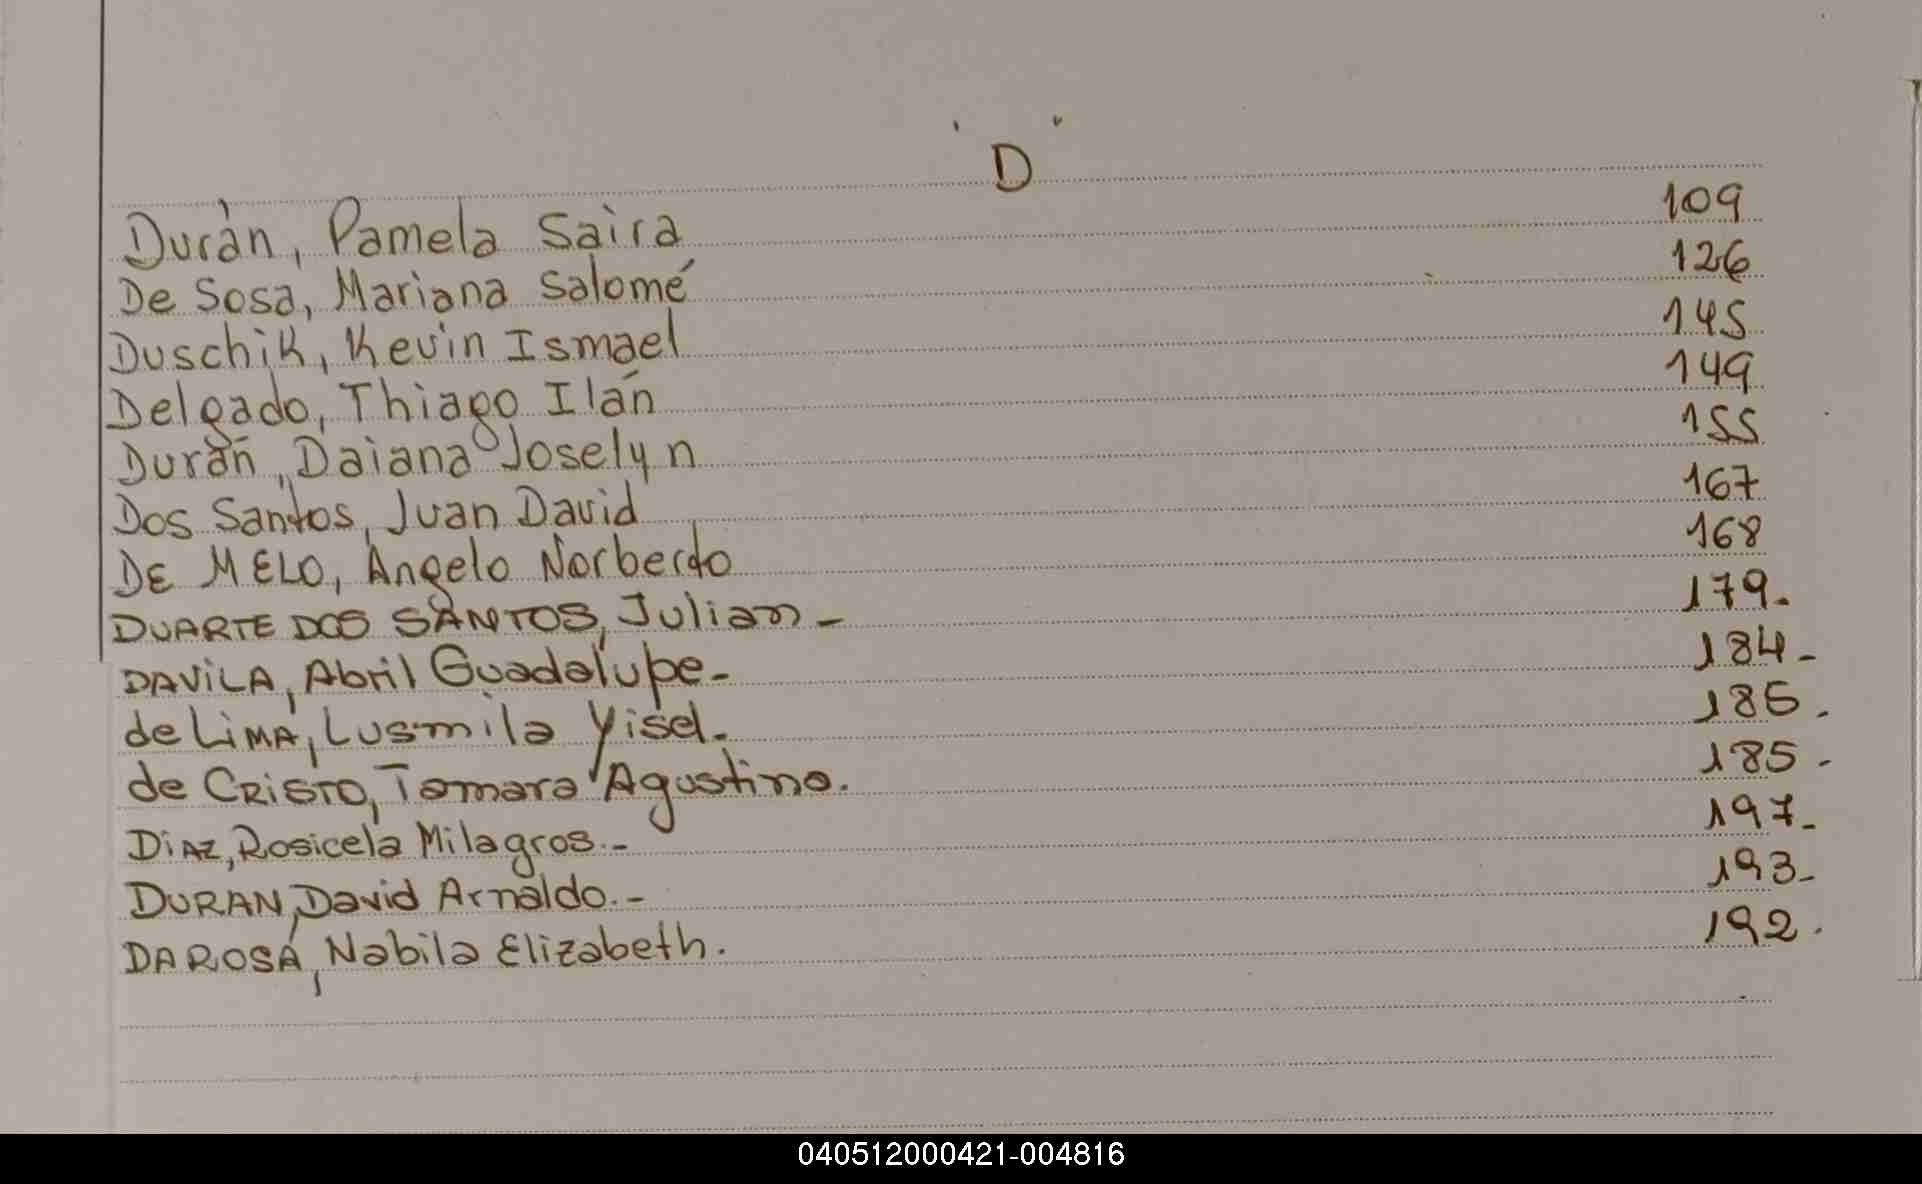 "D"
Durán, Pamela Saira 109
De Sosa, Mariana Salomé 126
Duschik, Kevin Ismael 145
Delgado, Thiago Ilán 149
Durán, Daiana Joselyn 155
Dos Santos, Juan David 167
DE MELO, Angelo Norberto 168
DUARTE DOS SANTOS, Julian - 179.
DAVILA, Abril Guadalupe - 184-
de LiMA, Lusmila Yisel. 185.
de CRiSTO, Tamara Agustina. 185-
DiAZ, Rosicela Milagros.- 197-
DURAN, David Arnaldo.- 193-
DA ROSA, Nabila Elizabeth. 192.
040512000421-004816